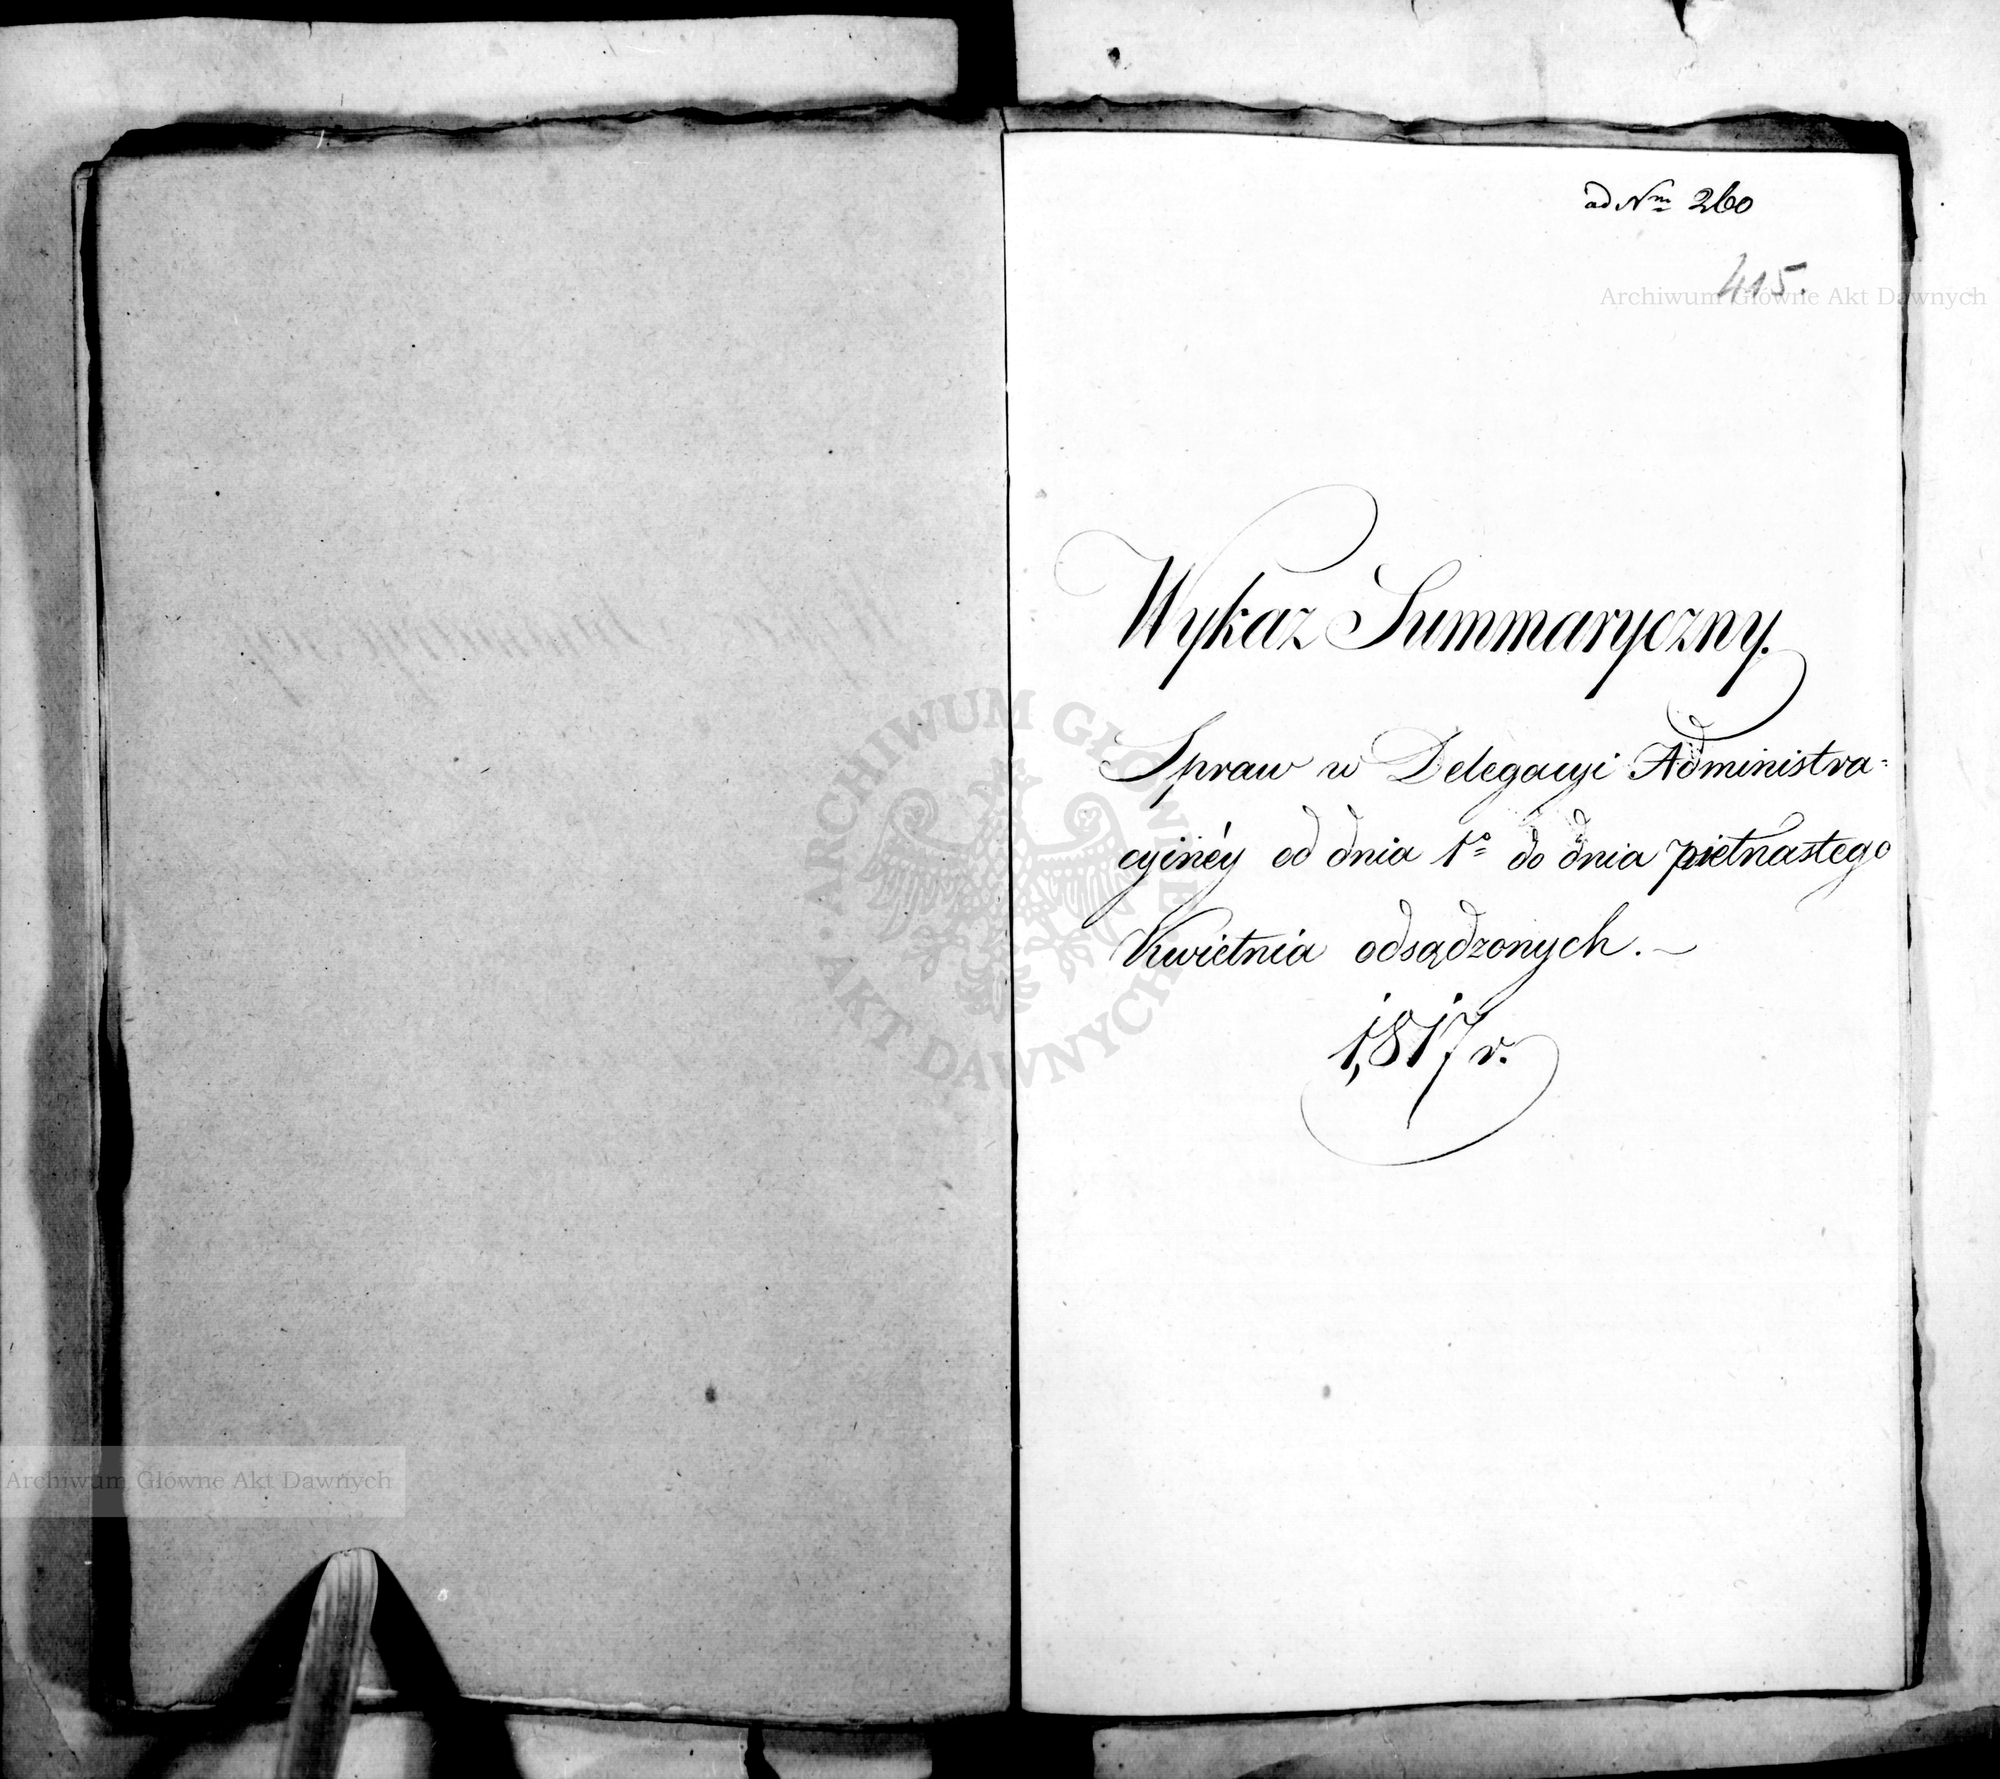 ad Nm 260
415.
Archiwum Główne Akt Dawnych
Wykaz Summaryczny.
Spraw w Delegacyi Administra=
cyinéy od dnia 1o do dnia pietnastego
Kwietnia odsądzonych.
1,817 r.
ARCHIWUM GŁÓWNE AKT DAWNYCH
Archiwum Główne Akt Dawnych